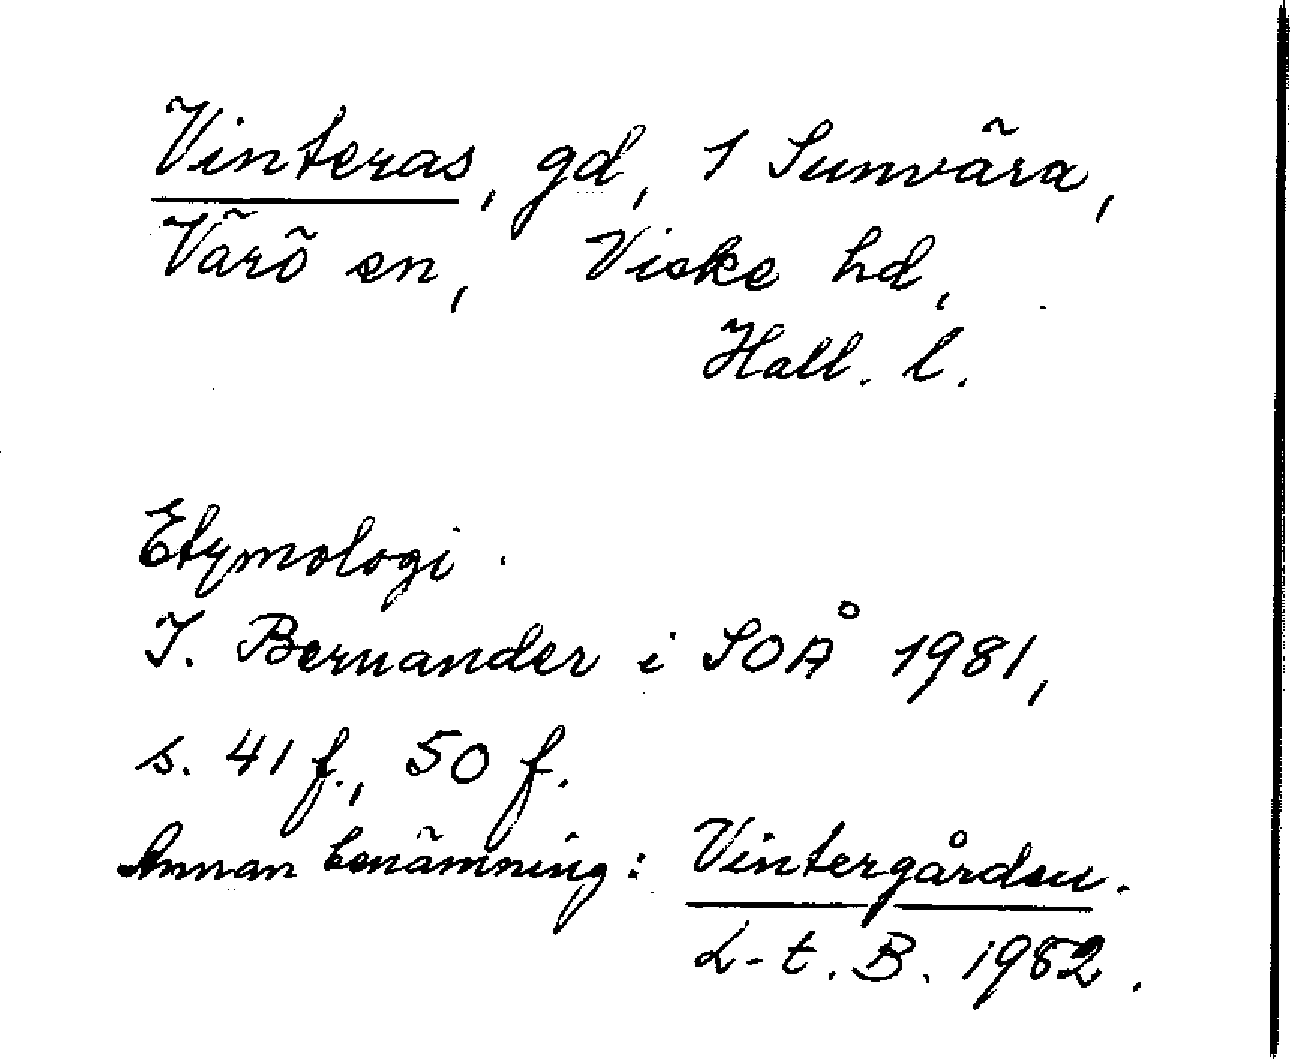 Vinteras, gd, 1 Sunvära,
Värö sn, Viske hd,
Hall. l.
Etymologi.
I. Bernander i SOÅ 1981,
s. 41 f., 50 f.
Annan benämning: Vintergården.
L-t. B. 1982.